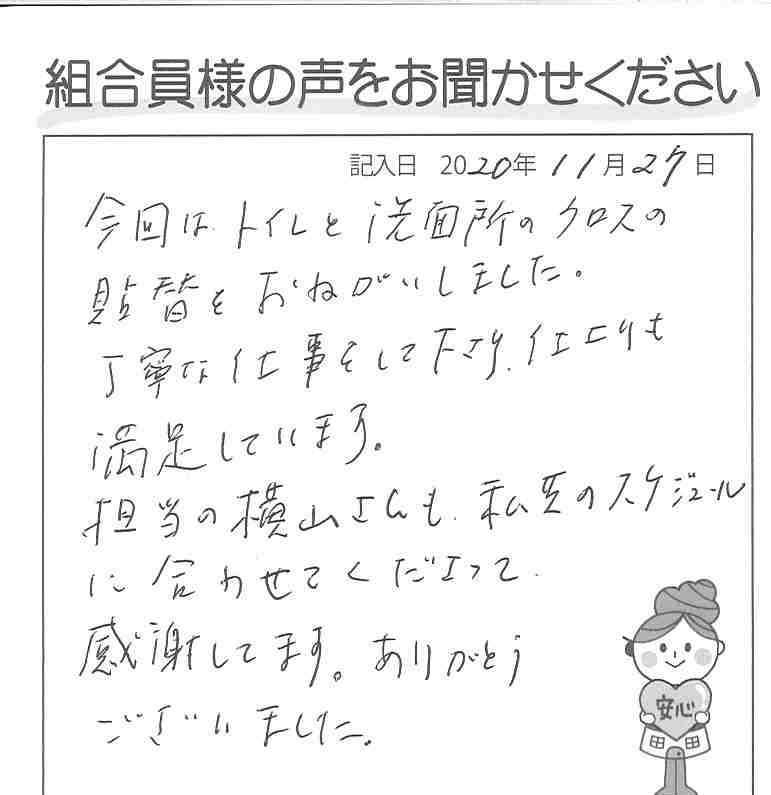 組合員様の声をお聞かせください
記入日 2020年 11月27日
今回は、トイレと洗面所のクロスの
貼替をおねがいしました。
丁寧な仕事をして下さり、仕上りも
満足しています。
担当の横山さんも、私達のスケジュール
に合わせてくださって、
感謝してます。ありがとう
ございました。
安心